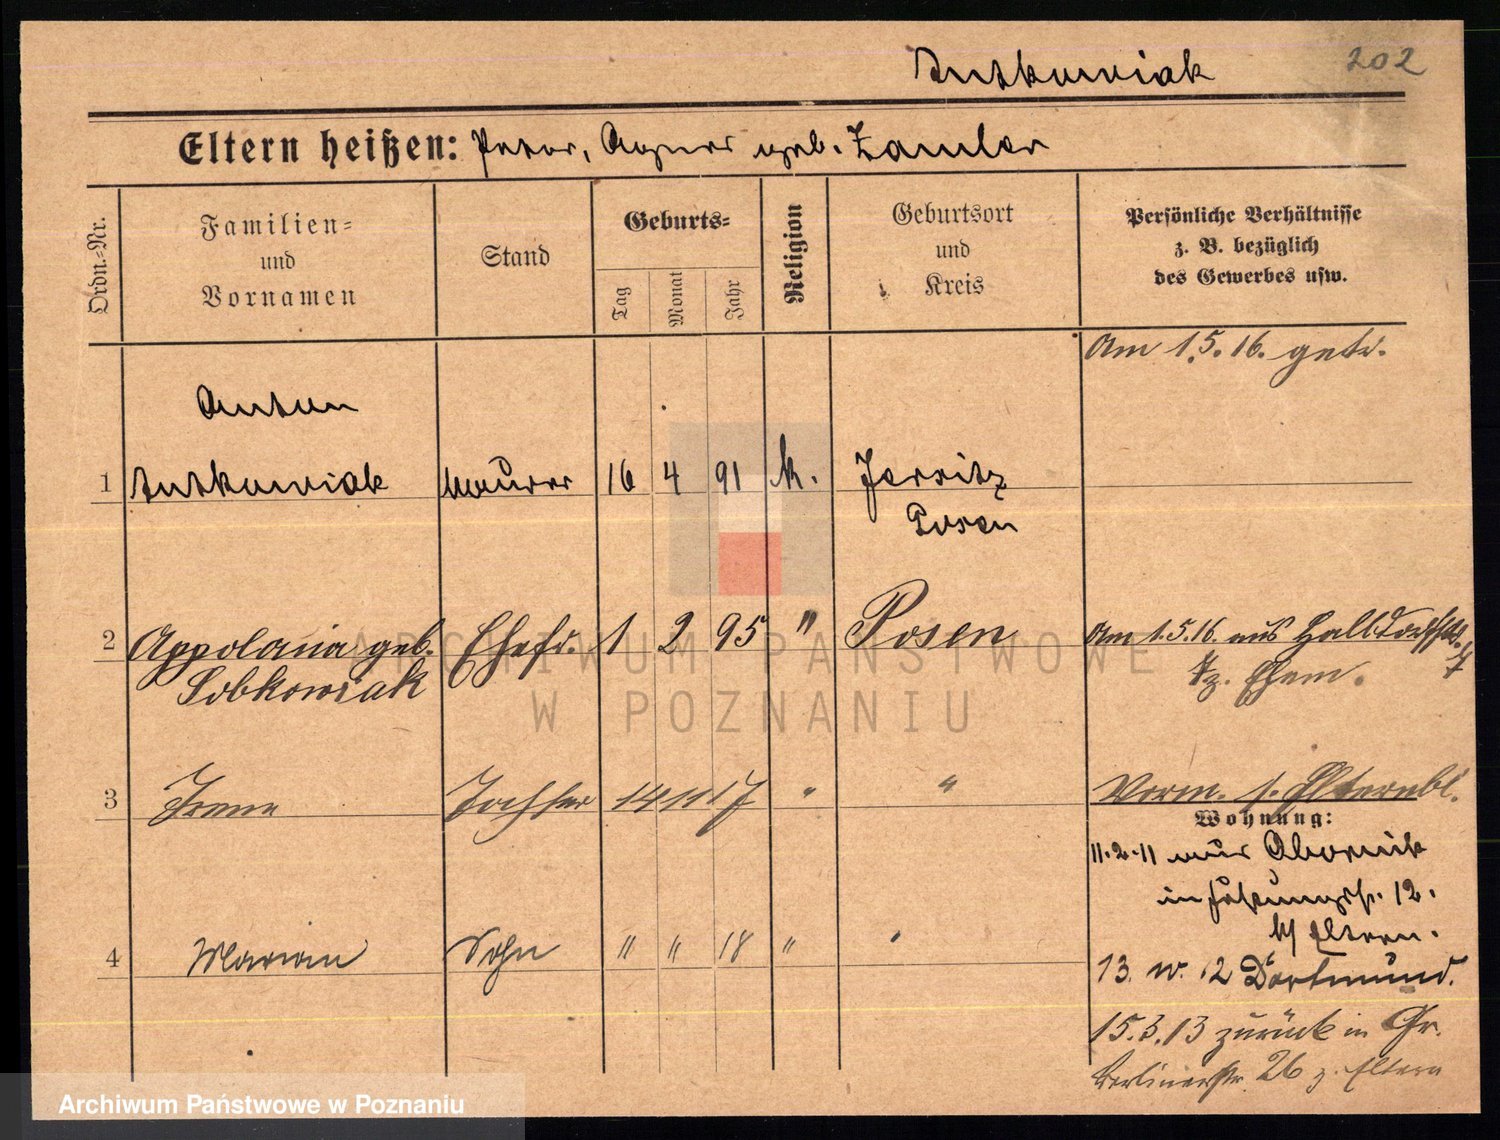 Jutkowiak 202
Eltern heißen: Peter, Agnes geb. Zamler
Ordn.-Nr.
Familien=
und
Vornamen
Stand
Geburts=
Tag Monat Jahr
Religion
Geburtsort
und
Kreis
Persönliche Verhältnisse
z. B. bezüglich
des Gewerbes usw.
Am 1.5.16. getr.
Anton
1 Jutkowiak Maurer 16 4 91 k. Jersitz
Posen
2 Appolania geb. Ehefr. 1 2 95 " Posen Am 1.5.16. aus
Sobkowiak z. Ehem.
3 Irene Tochter 14 11 17 " " Vorm. s. Elternbl.
Wohnung:
11.2.11 aus Obornik
in 12.
b/ Eltern.
4 Marian Sohn " " 18 " "
13. 12 Dortmund.
15.3.13 zurück in Gr.
Berlinerstr. 26 z. Eltern
ARCHIWUM PAŃSTWOWE
W POZNANIU
Archiwum Państwowe w Poznaniu